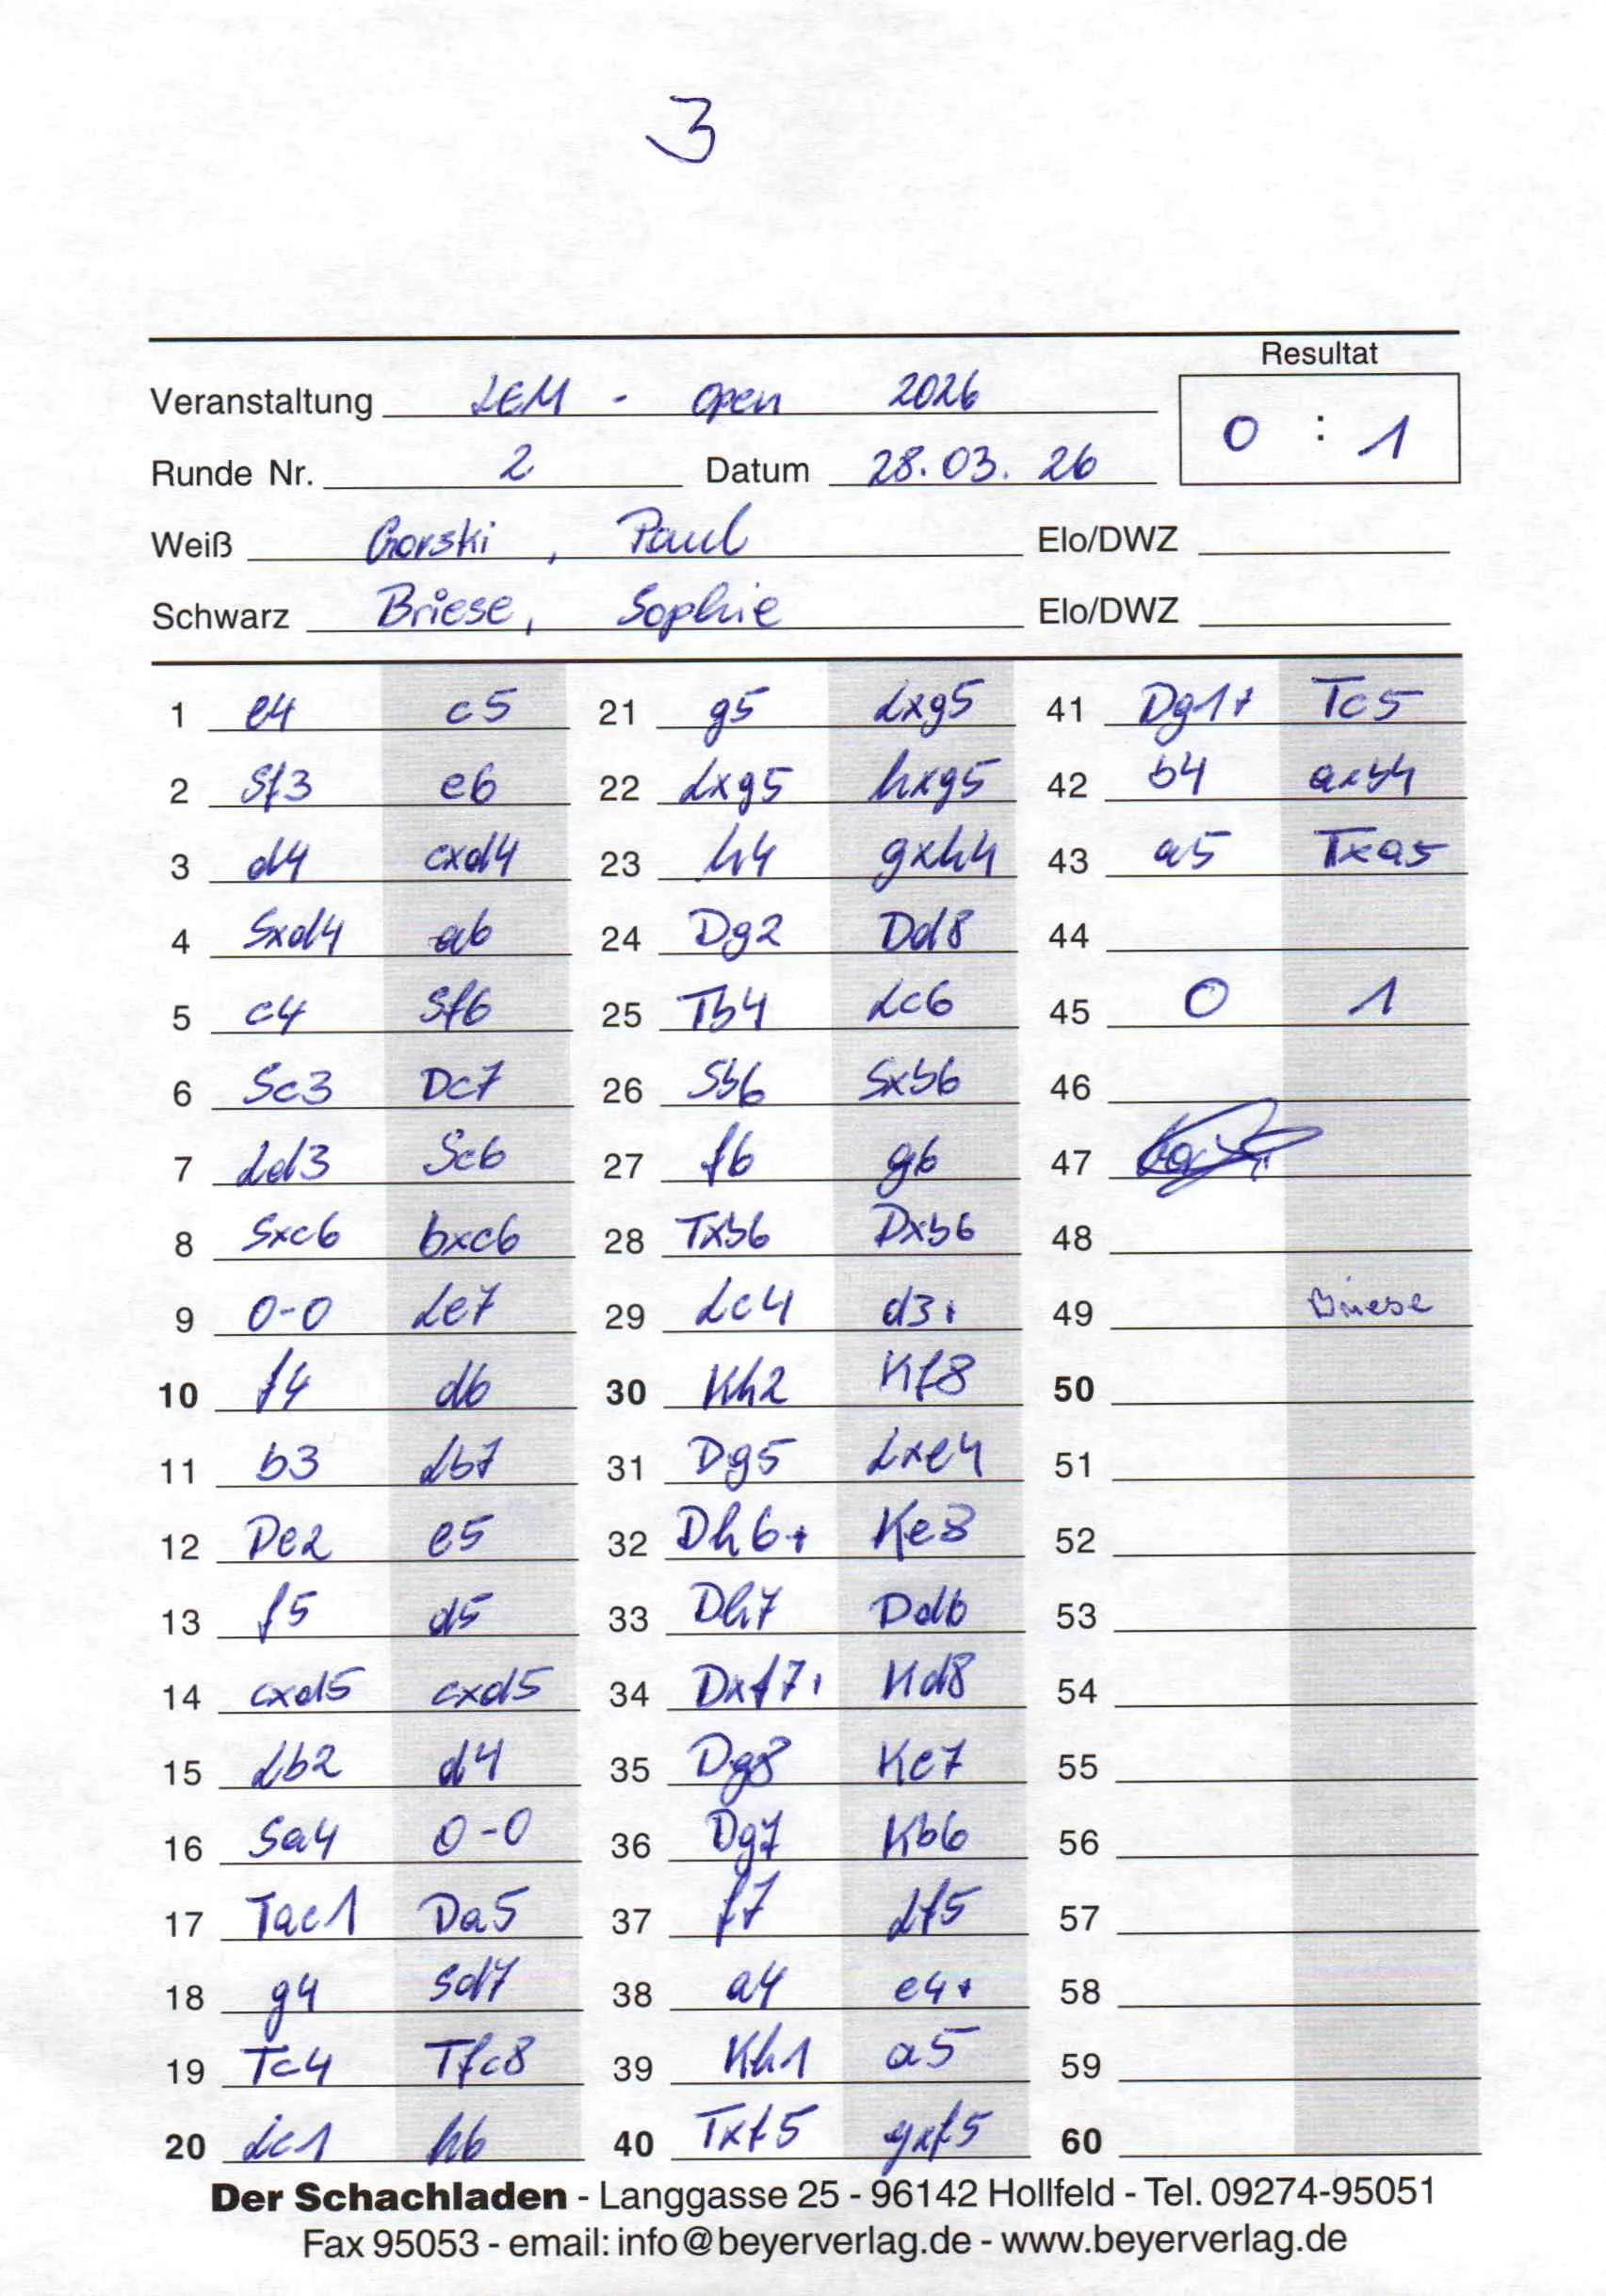 3
Resultat
Veranstaltung LEM - open 2026
0 : 1
Runde Nr. 2 Datum 28.03.26
Weiß Gorski, Paul Elo/DWZ
Schwarz Briese, Sophie Elo/DWZ
1 e4 c5 21 g5 Lxg5 41 Dg1+ Tc5
2 Sf3 e6 22 Lxg5 hxg5 42 b4 axb4
3 d4 cxd4 23 h4 gxh4 43 a5 Txa5
4 Sxd4 a6 24 Dg2 Dd8 44
5 c4 Sf6 25 Tb4 Lc6 45 0 1
6 Sc3 Dc7 26 Sb6 Sxb6 46
7 Ld3 Sc6 27 f6 g6 47
8 Sxc6 bxc6 28 Txb6 Dxb6 48
9 0-0 Le7 29 Lc4 d3+ 49 Briese
10 f4 d6 30 Kh2 Kf8 50
11 b3 Lb7 31 Dg5 Lxe4 51
12 De2 e5 32 Dh6+ Ke8 52
13 f5 d5 33 Dh7 Dd6 53
14 cxd5 cxd5 34 Dxf7+ Kd8 54
15 Lb2 d4 35 Dg8 Kc7 55
16 Sa4 0-0 36 Dg7 Kb6 56
17 Tac1 Da5 37 f7 Lf5 57
18 g4 Sd7 38 a4 e4+ 58
19 Tc4 Tfc8 39 Kh1 a5 59
20 Lc1 h6 40 Txf5 gxf5 60
Der Schachladen - Langgasse 25 - 96142 Hollfeld - Tel. 09274-95051
Fax 95053 - email: info@beyerverlag.de - www.beyerverlag.de